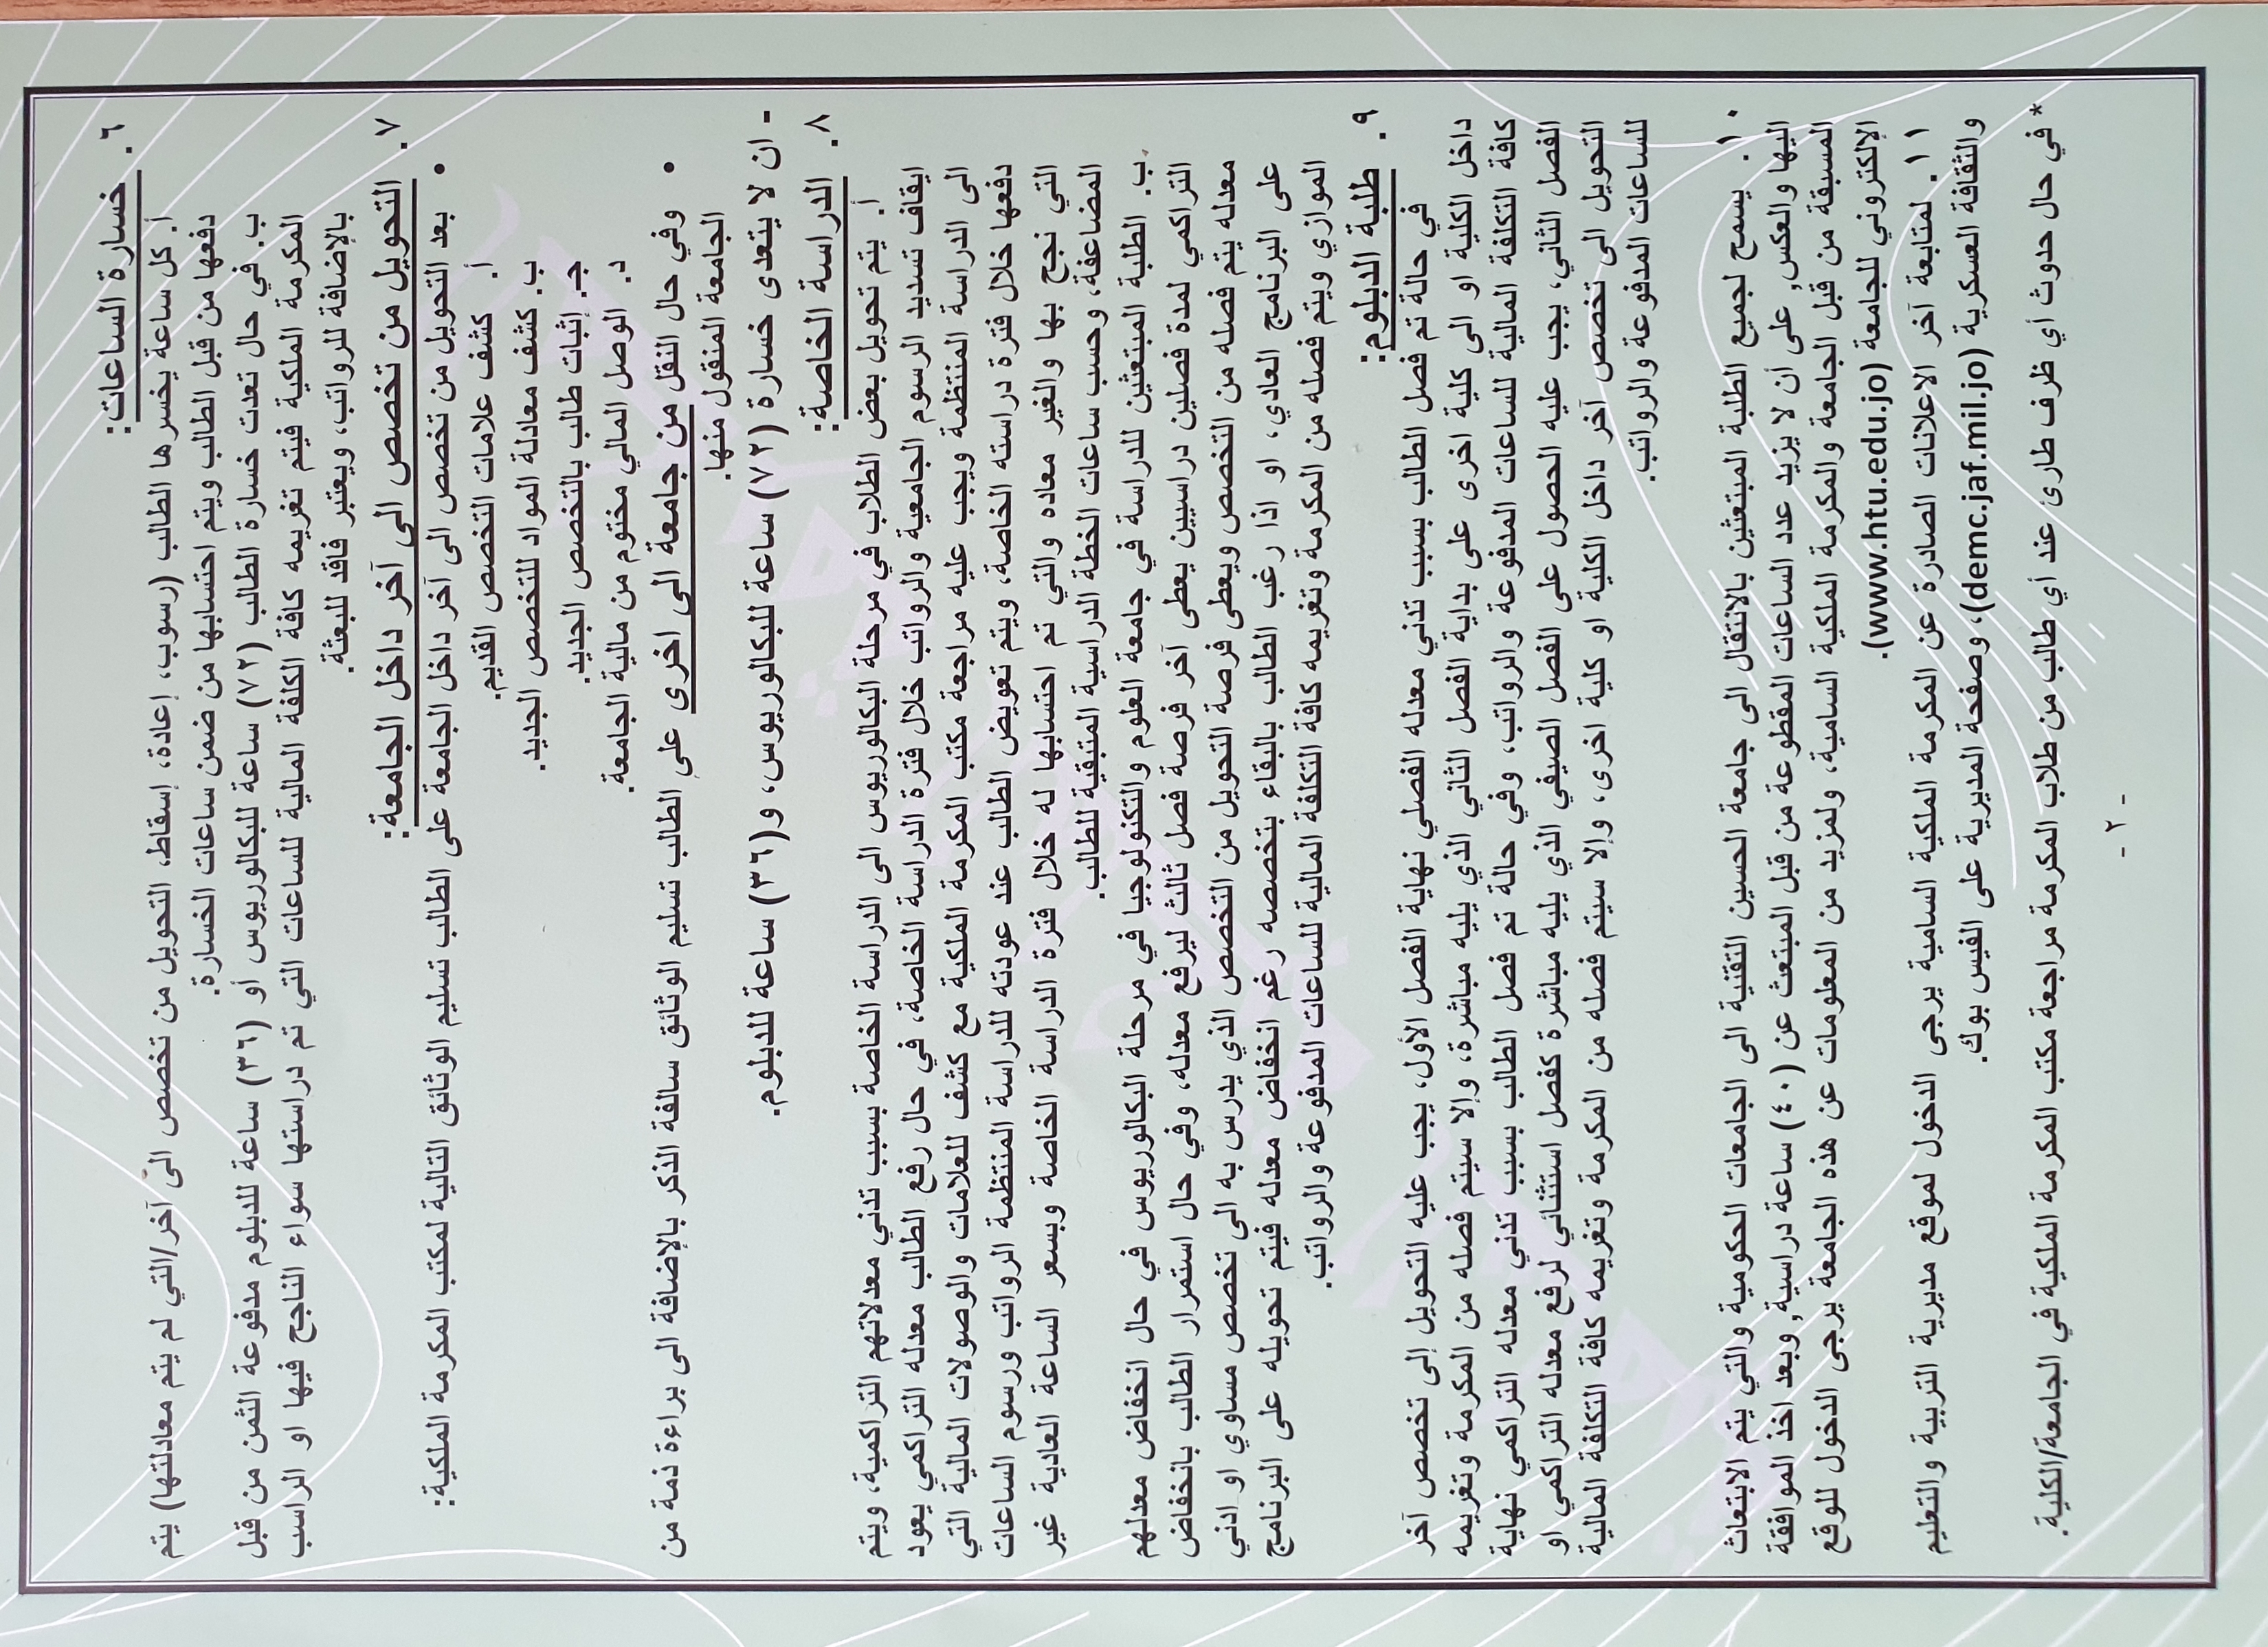 ٦. خسارة الساعات:
أ. كل ساعة يخسرها الطالب (رسوب، إعادة، إسقاط، التحويل من تخصص الى آخر/التي لم يتم معادلتها) يتم
دفعها من قبل الطالب ويتم احتسابها من ضمن ساعات الخسارة.
ب. في حال تعدت خسارة الطالب (٧٢) ساعة للبكالوريوس أو (٣٦) ساعة للدبلوم مدفوعة الثمن من قبل
المكرمة الملكية فيتم تغريمه كافة الكلفة المالية للساعات التي تم دراستها سواء الناجح فيها او الراسب
بالإضافة للرواتب، ويعتبر فاقد للبعثة.
٧. التحويل من تخصص الى آخر داخل الجامعة:
• بعد التحويل من تخصص الى آخر داخل الجامعة على الطالب تسليم الوثائق التالية لمكتب المكرمة الملكية:
أ. كشف علامات التخصص القديم.
ب. كشف معادلة المواد للتخصص الجديد.
جـ. إثبات طالب بالتخصص الجديد.
د. الوصل المالي مختوم من مالية الجامعة.
• وفي حال النقل من جامعة الى اخرى على الطالب تسليم الوثائق سالفة الذكر بالإضافة الى براءة ذمة من
الجامعة المنقول منها.
- ان لا يتعدى خسارة (٧٢) ساعة للبكالوريوس، و(٣٦) ساعة للدبلوم.
٨. الدراسة الخاصة:
أ. يتم تحويل بعض الطلاب في مرحلة البكالوريوس الى الدراسة الخاصة بسبب تدني معدلاتهم التراكمية، ويتم
ايقاف تسديد الرسوم الجامعية والرواتب خلال فترة الدراسة الخاصة، في حال رفع الطالب معدله التراكمي يعود
الى الدراسة المنتظمة ويجب عليه مراجعة مكتب المكرمة الملكية مع كشف للعلامات والوصولات المالية التي
دفعها خلال فترة دراسته الخاصة، ويتم تعويض الطالب عند عودته للدراسة المنتظمة الرواتب ورسوم الساعات
التي نجح بها والغير معاده والتي تم احتسابها له خلال فترة الدراسة الخاصة وبسعر الساعة العادية غير
المضاعفة، وحسب ساعات الخطة الدراسية المتبقية للطالب.
ب. الطلبة المبتعثين للدراسة في جامعة العلوم والتكنولوجيا في مرحلة البكالوريوس في حال انخفاض معدلهم
التراكمي لمدة فصلين دراسيين يعطى آخر فرصة فصل ثالث ليرفع معدله، وفي حال استمرار الطالب بانخفاض
معدله يتم فصله من التخصص ويعطى فرصة التحويل من التخصص الذي يدرس به الى تخصص مساوي او ادني
على البرنامج العادي، او اذا رغب الطالب بالبقاء بتخصصه رغم انخفاض معدله فيتم تحويله على البرنامج
الموازي ويتم فصله من المكرمة وتغريمه كافة التكلفة المالية للساعات المدفوعة والرواتب.
٩. طلبة الدبلوم:
في حالة تم فصل الطالب بسبب تدني معدله الفصلي نهاية الفصل الأول، يجب عليه التحويل إلى تخصص آخر
داخل الكلية او الى كلية اخرى على بداية الفصل الثاني الذي يليه مباشرة، وإلا سيتم فصله من المكرمة وتغريمه
كافة التكلفة المالية للساعات المدفوعة والرواتب، وفي حالة تم فصل الطالب بسبب تدني معدله التراكمي نهاية
الفصل الثاني، يجب عليه الحصول على الفصل الصيفي الذي يليه مباشرة كفصل استثنائي لرفع معدله التراكمي او
التحويل الى تخصص آخر داخل الكلية او كلية اخرى، وإلا سيتم فصله من المكرمة وتغريمه كافة التكلفة المالية
للساعات المدفوعة والرواتب.
١٠. يسمح لجميع الطلبة المبتعثين بالانتقال الى جامعة الحسين التقنية الى الجامعات الحكومية والتي يتم الابتعاث
اليها والعكس, على أن لا يزيد عدد الساعات المقطوعة من قبل المبتعث عن (٤٠) ساعة دراسية, وبعد اخذ الموافقة
المسبقة من قبل الجامعة والمكرمة الملكية السامية، ولمزيد من المعلومات عن هذه الجامعة يرجى الدخول للموقع
الإلكتروني للجامعة (www.htu.edu.jo).
١١. لمتابعة آخر الاعلانات الصادرة عن المكرمة الملكية السامية يرجى الدخول لموقع مديرية التربية والتعليم
والثقافة العسكرية (demc.jaf.mil.jo)، وصفحة المديرية على الفيس بوك.
* في حال حدوث أي ظرف طارئ عند أي طالب من طلاب المكرمة مراجعة مكتب المكرمة الملكية في الجامعة/الكلية.
- ٢ -